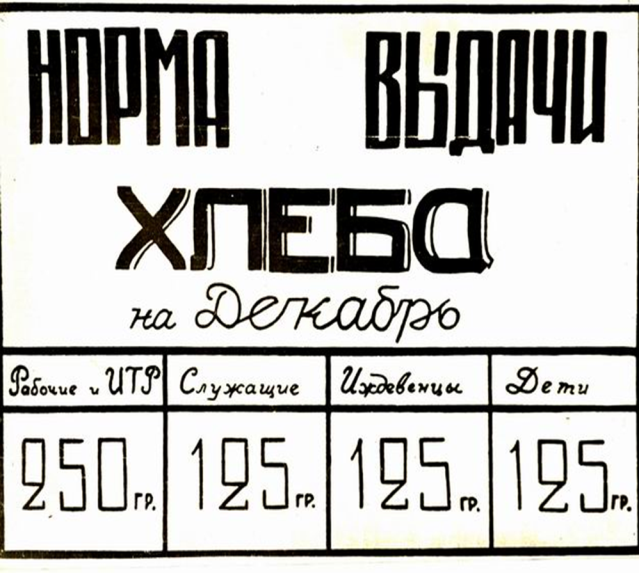 НОРМА ВЫДАЧИ
ХЛЕБА
на Декабрь
Рабочие и ИТР Служащие Иждевенцы Дети
250 гр. 125 гр. 125 гр. 125 гр.